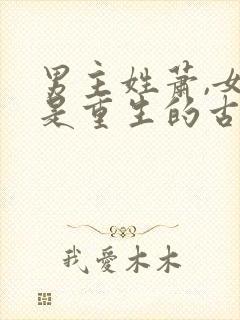 男主姓萧,女
是重生的古
我愛木木